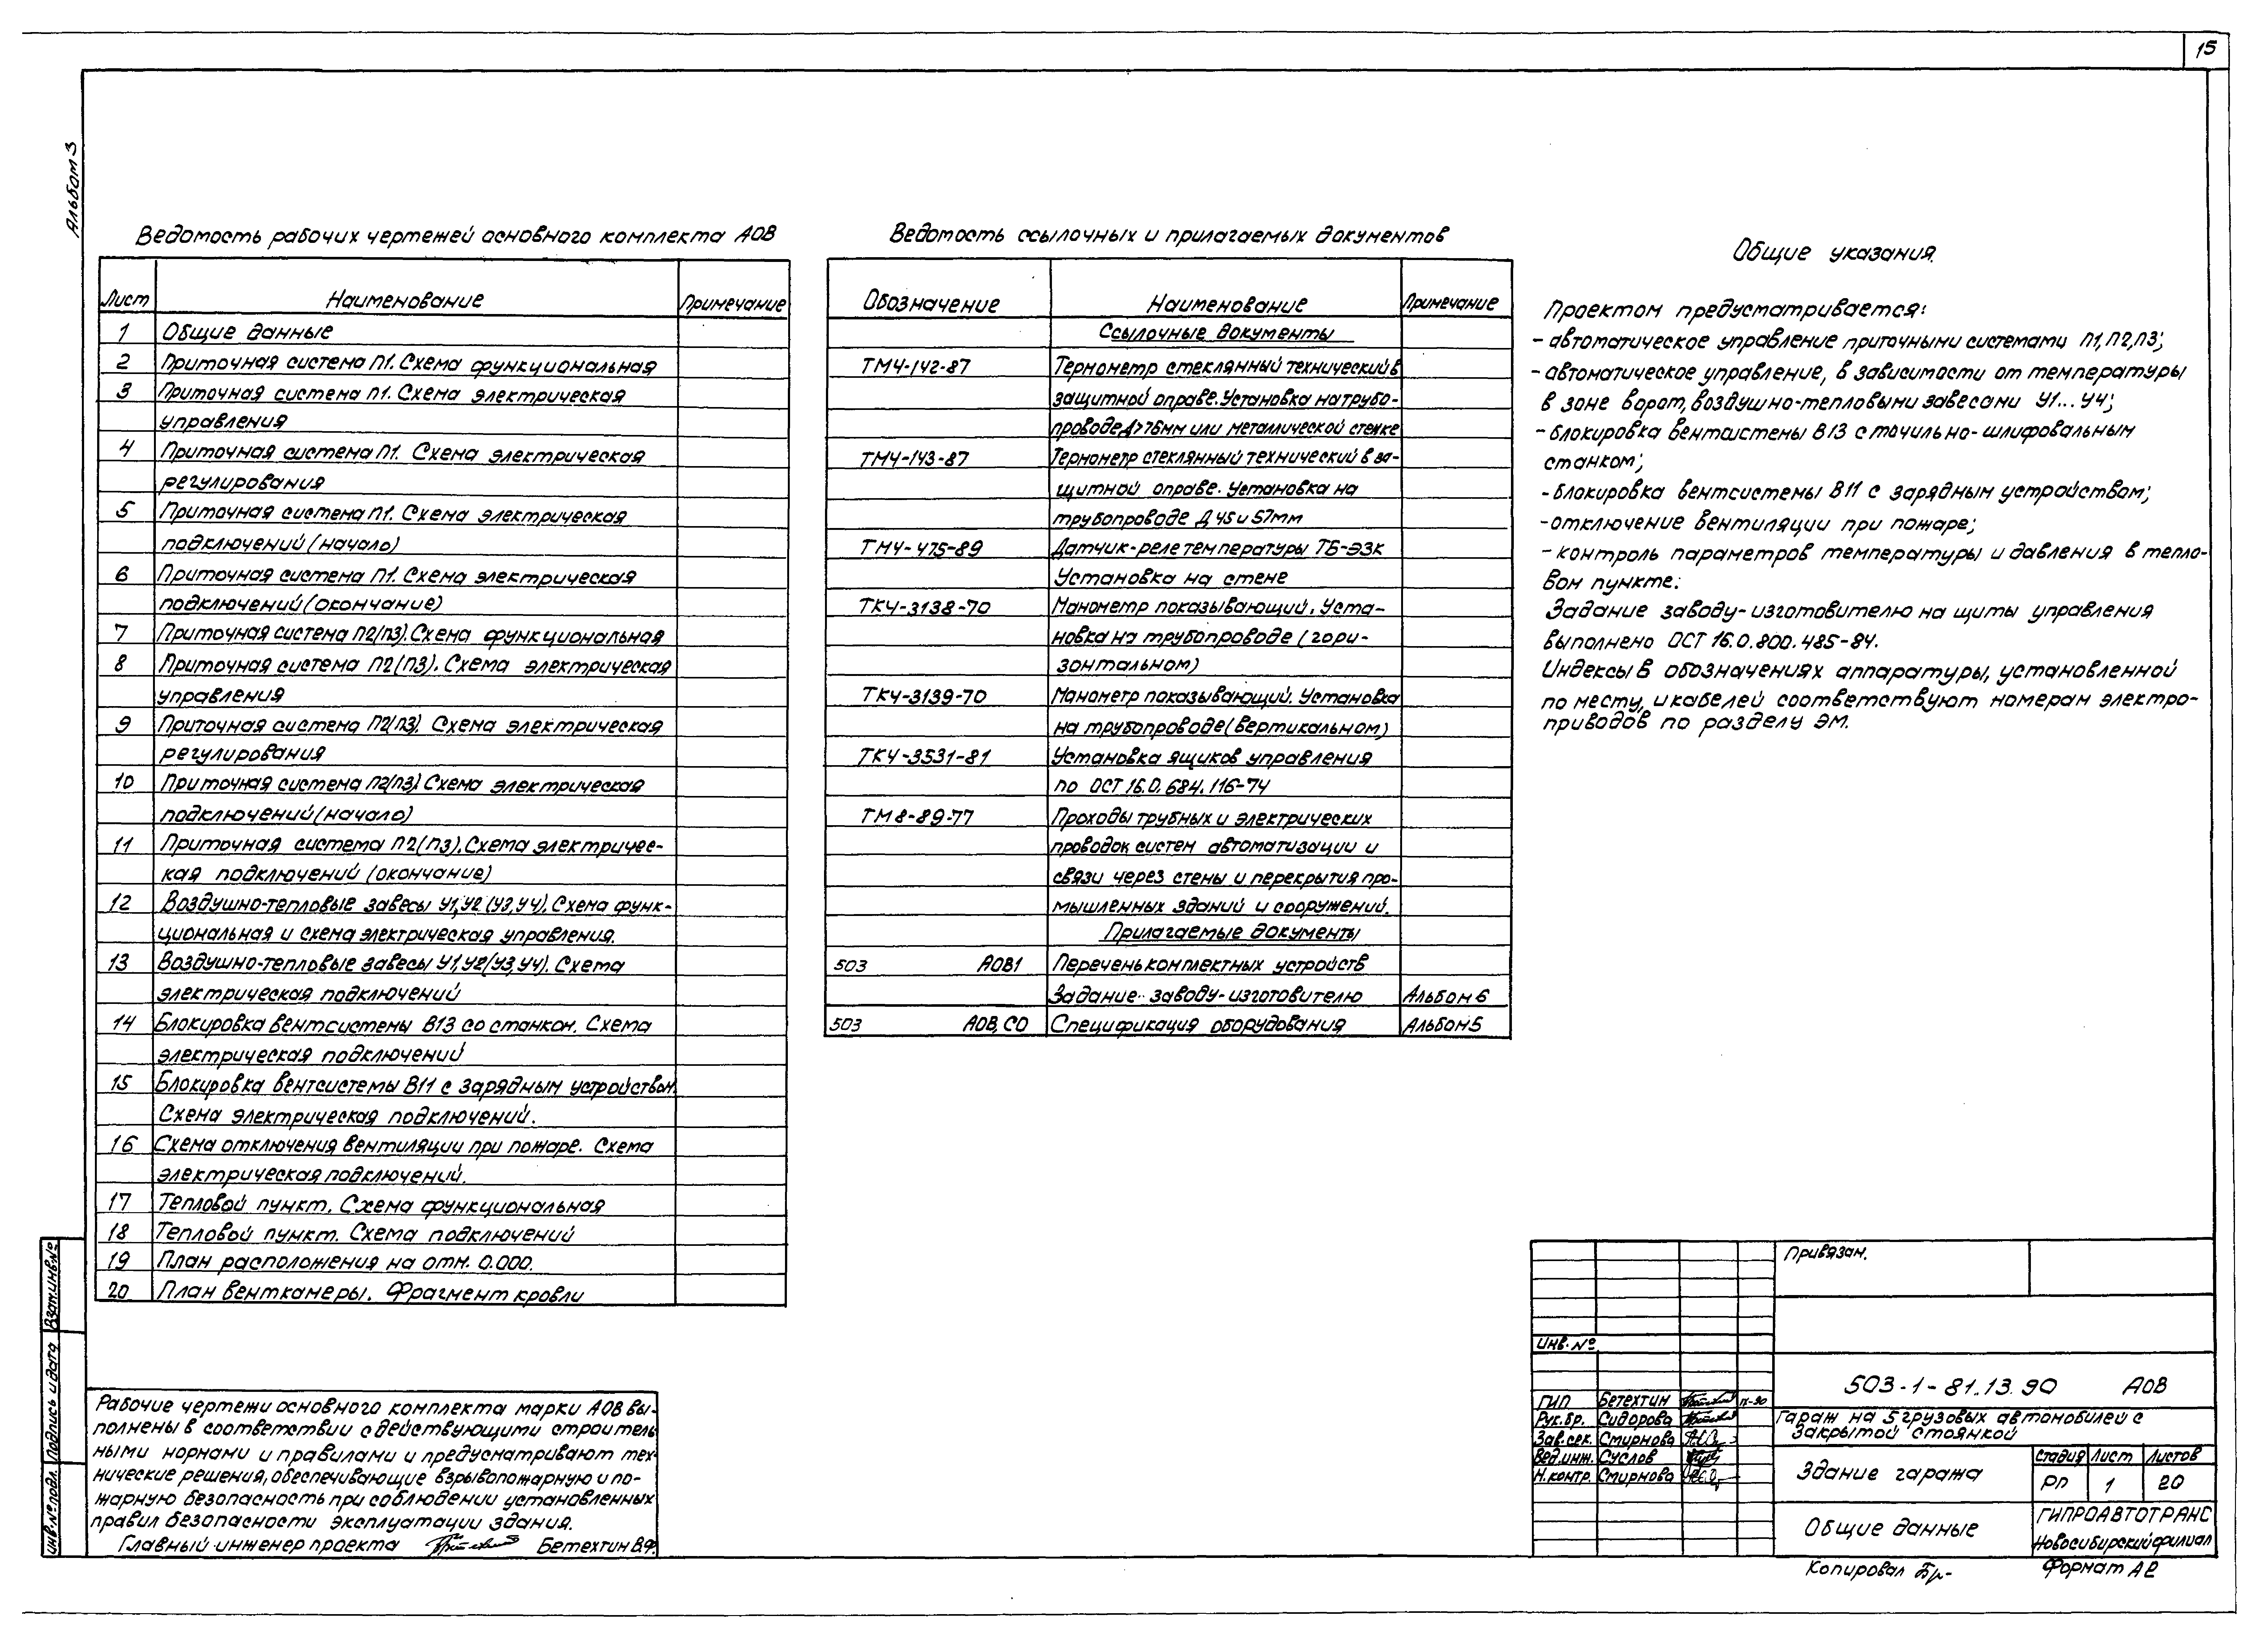 15
Альбом 3
Ведомость рабочих чертежей основного комплекта АОВ
Лист Наименование Примечание
1 Общие данные
2 Приточная система П1. Схема функциональная
3 Приточная система П1. Схема электрическая
управления
4 Приточная система П1. Схема электрическая
регулирования
5 Приточная система П1. Схема электрическая
подключений (начало)
6 Приточная система П1. Схема электрическая
подключений (окончание)
7 Приточная система П2(П3). Схема функциональная
8 Приточная система П2(П3). Схема электрическая
управления
9 Приточная система П2(П3). Схема электрическая
регулирования
10 Приточная система П2(П3) Схема электрическая
подключений (начало)
11 Приточная система П2(П3). Схема электричес-
кая подключений (окончание)
12 Воздушно-тепловые завесы У1,У2 (У3,У4). Схема функ-
циональная и схема электрическая управления.
13 Воздушно-тепловые завесы У1,У2(У3,У4). Схема
электрическая подключений
14 Блокировка вентсистемы В13 со станком. Схема
электрическая подключений
15 Блокировка вентсистемы В11 с зарядным устройством.
Схема электрическая подключений.
16 Схема отключения вентиляции при пожаре. Схема
электрическая подключений.
17 Тепловой пункт. Схема функциональная
18 Тепловой пункт. Схема подключений
19 План расположения на отм. 0.000.
20 План венткамеры. Фрагмент кровли
Ведомость ссылочных и прилагаемых документов
Обозначение Наименование Примечание
Ссылочные документы
ТМ4-142-87 Термометр стеклянный технический в
защитной оправе. Установка на трубо-
проводе Д>76мм или металлической стенке
ТМ4-143-87 Термометр стеклянный технический в за-
щитной оправе. Установка на
трубопроводе Д 45 и 57мм
ТМ4-475-89 Датчик-реле температуры ТБ-ЭЗК
Установка на стене
ТК4-3138-70 Манометр показывающий. Уста-
новка на трубопроводе (гори-
зонтальном)
ТК4-3139-70 Манометр показывающий. Установка
на трубопроводе (вертикальном)
ТК4-3531-81 Установка ящиков управления
по ОСТ 16.0.684.116-74
ТМ8-89-77 Проходы трубных и электрических
проводок систем автоматизации и
связи через стены и перекрытия про-
мышленных зданий и сооружений.
Прилагаемые документы
503 АОВ1 Перечень комплектных устройств
Задание заводу-изготовителю Альбом 6
503 АОВ.СО Спецификация оборудования Альбом 5
Общие указания.
Проектом предусматривается:
- автоматическое управление приточными системами П1,П2,П3;
- автоматическое управление, в зависимости от температуры
в зоне ворот, воздушно-тепловыми завесами У1...У4;
- блокировка вентсистемы В13 с точильно-шлифовальным
станком;
- блокировка вентсистемы В11 с зарядным устройством;
- отключение вентиляции при пожаре;
- контроль параметров температуры и давления в тепло-
вом пункте.
Задание заводу-изготовителю на щиты управления
выполнено ОСТ 16.0.800.485-84.
Индексы в обозначениях аппаратуры, установленной
по месту, и кабелей соответствуют номерам электро-
приводов по разделу ЭМ.
Рабочие чертежи основного комплекта марки АОВ вы-
полнены в соответствии с действующими строитель
ными нормами и правилами и предусматривают тех-
нические решения, обеспечивающие взрывопожарную и по-
жарную безопасность при соблюдении установленных
правил безопасности эксплуатации здания.
Главный инженер проекта Бетехтин В.Ф.
Инв.№ подл. Подпись и дата Взам.инв.№
Привязан.
Инв. №
503-1-81.13.90 АОВ
ГИП Бетехтин IX-90
Рук.бр. Сидорова
Зав.сек. Смирнова
Вед.инж. Суслов
Н.контр. Смирнова
Гараж на 5 грузовых автомобилей с
закрытой стоянкой
Здание гаража
Стадия Лист Листов
РП 1 20
Общие данные
ГИПРОАВТОТРАНС
Новосибирский филиал
Копировал Бр-
Формат А2